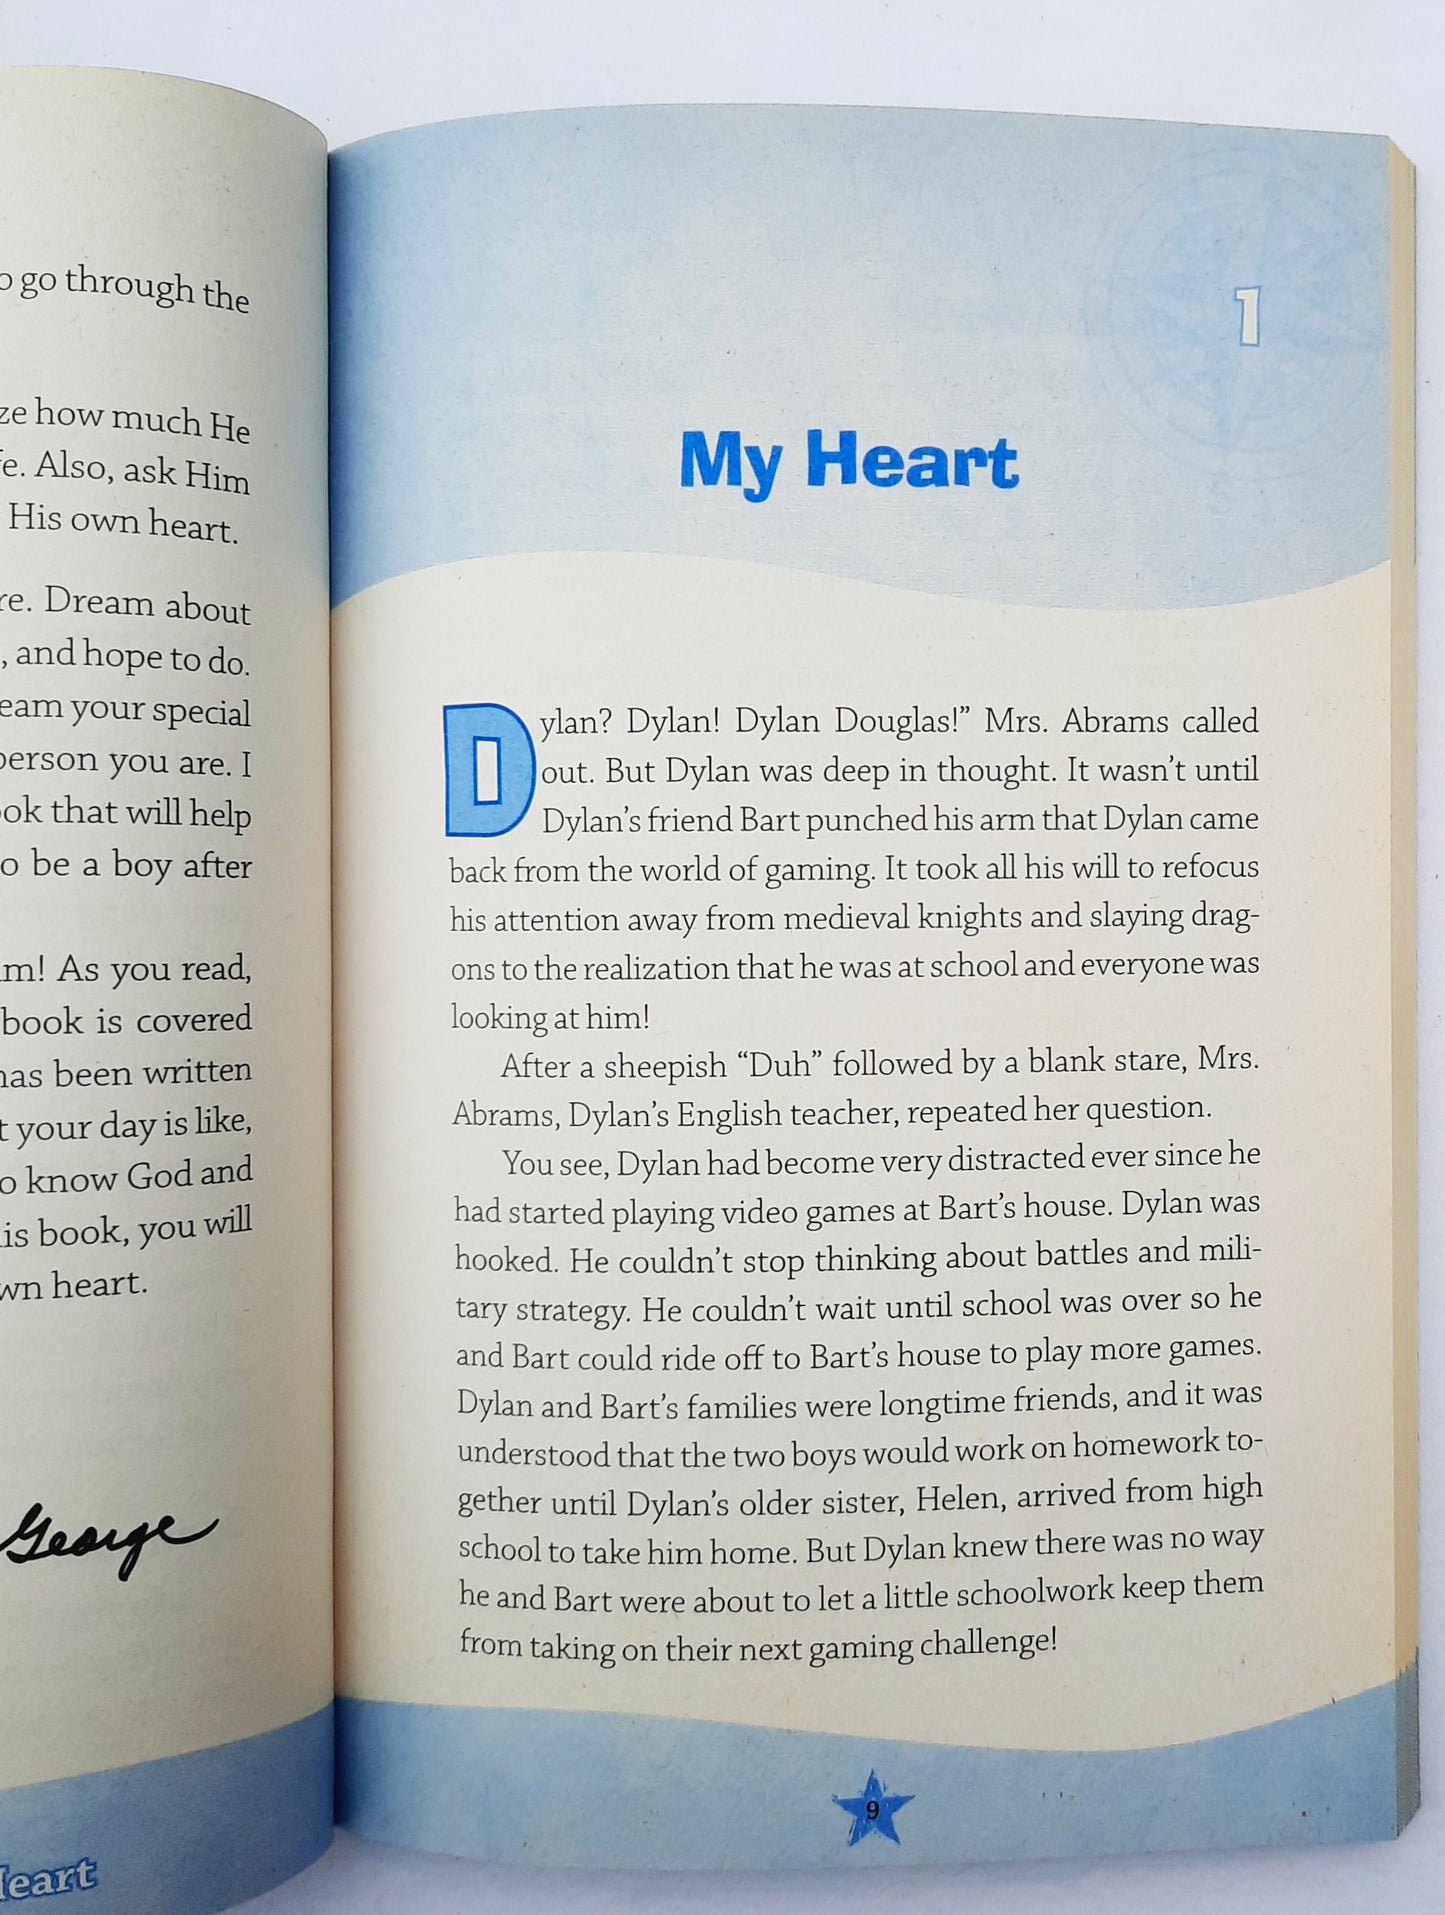 go through the
how much He
Also, ask Him
His own heart.
Dream about
, and hope to do.
your special
you are. I
that will help
be a boy after
As you read,
book is covered
been written
your day is like,
know God and
book, you will
heart.
George
1
My Heart
Dylan? Dylan! Dylan Douglas!” Mrs. Abrams called
out. But Dylan was deep in thought. It wasn’t until
Dylan’s friend Bart punched his arm that Dylan came
back from the world of gaming. It took all his will to refocus
his attention away from medieval knights and slaying drag-
ons to the realization that he was at school and everyone was
looking at him!
After a sheepish “Duh” followed by a blank stare, Mrs.
Abrams, Dylan’s English teacher, repeated her question.
You see, Dylan had become very distracted ever since he
had started playing video games at Bart’s house. Dylan was
hooked. He couldn’t stop thinking about battles and mili-
tary strategy. He couldn’t wait until school was over so he
and Bart could ride off to Bart’s house to play more games.
Dylan and Bart’s families were longtime friends, and it was
understood that the two boys would work on homework to-
gether until Dylan’s older sister, Helen, arrived from high
school to take him home. But Dylan knew there was no way
he and Bart were about to let a little schoolwork keep them
from taking on their next gaming challenge!
9